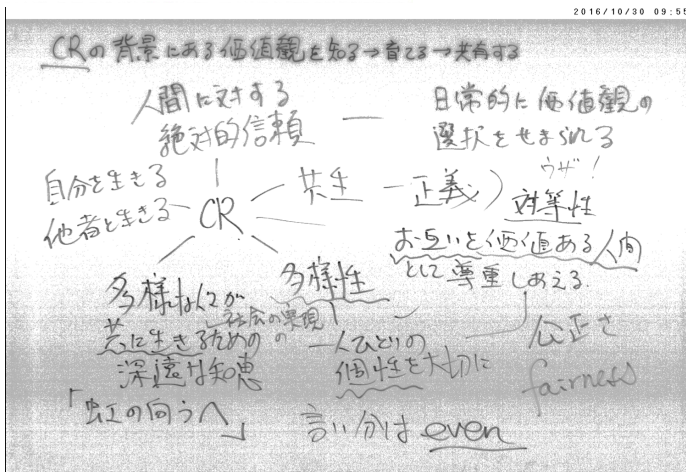 2016/10/30 09:55
CRの背景にある価値観を知る→育てる→共有する
人間に対する
絶対的信頼
日常的に価値観の
選択をせまられる
ウザ!
自分を生きる
他者と生きる
CR
共生
正義)
対等性
お互いを価値ある人間
として尊重しあえる.
多様な人が
共に生きるための
社会の実現の
深遠な知恵
「虹の向うへ」
多様性
一人ひとりの
個性を大切に
公正さ
fairness
言い分は even